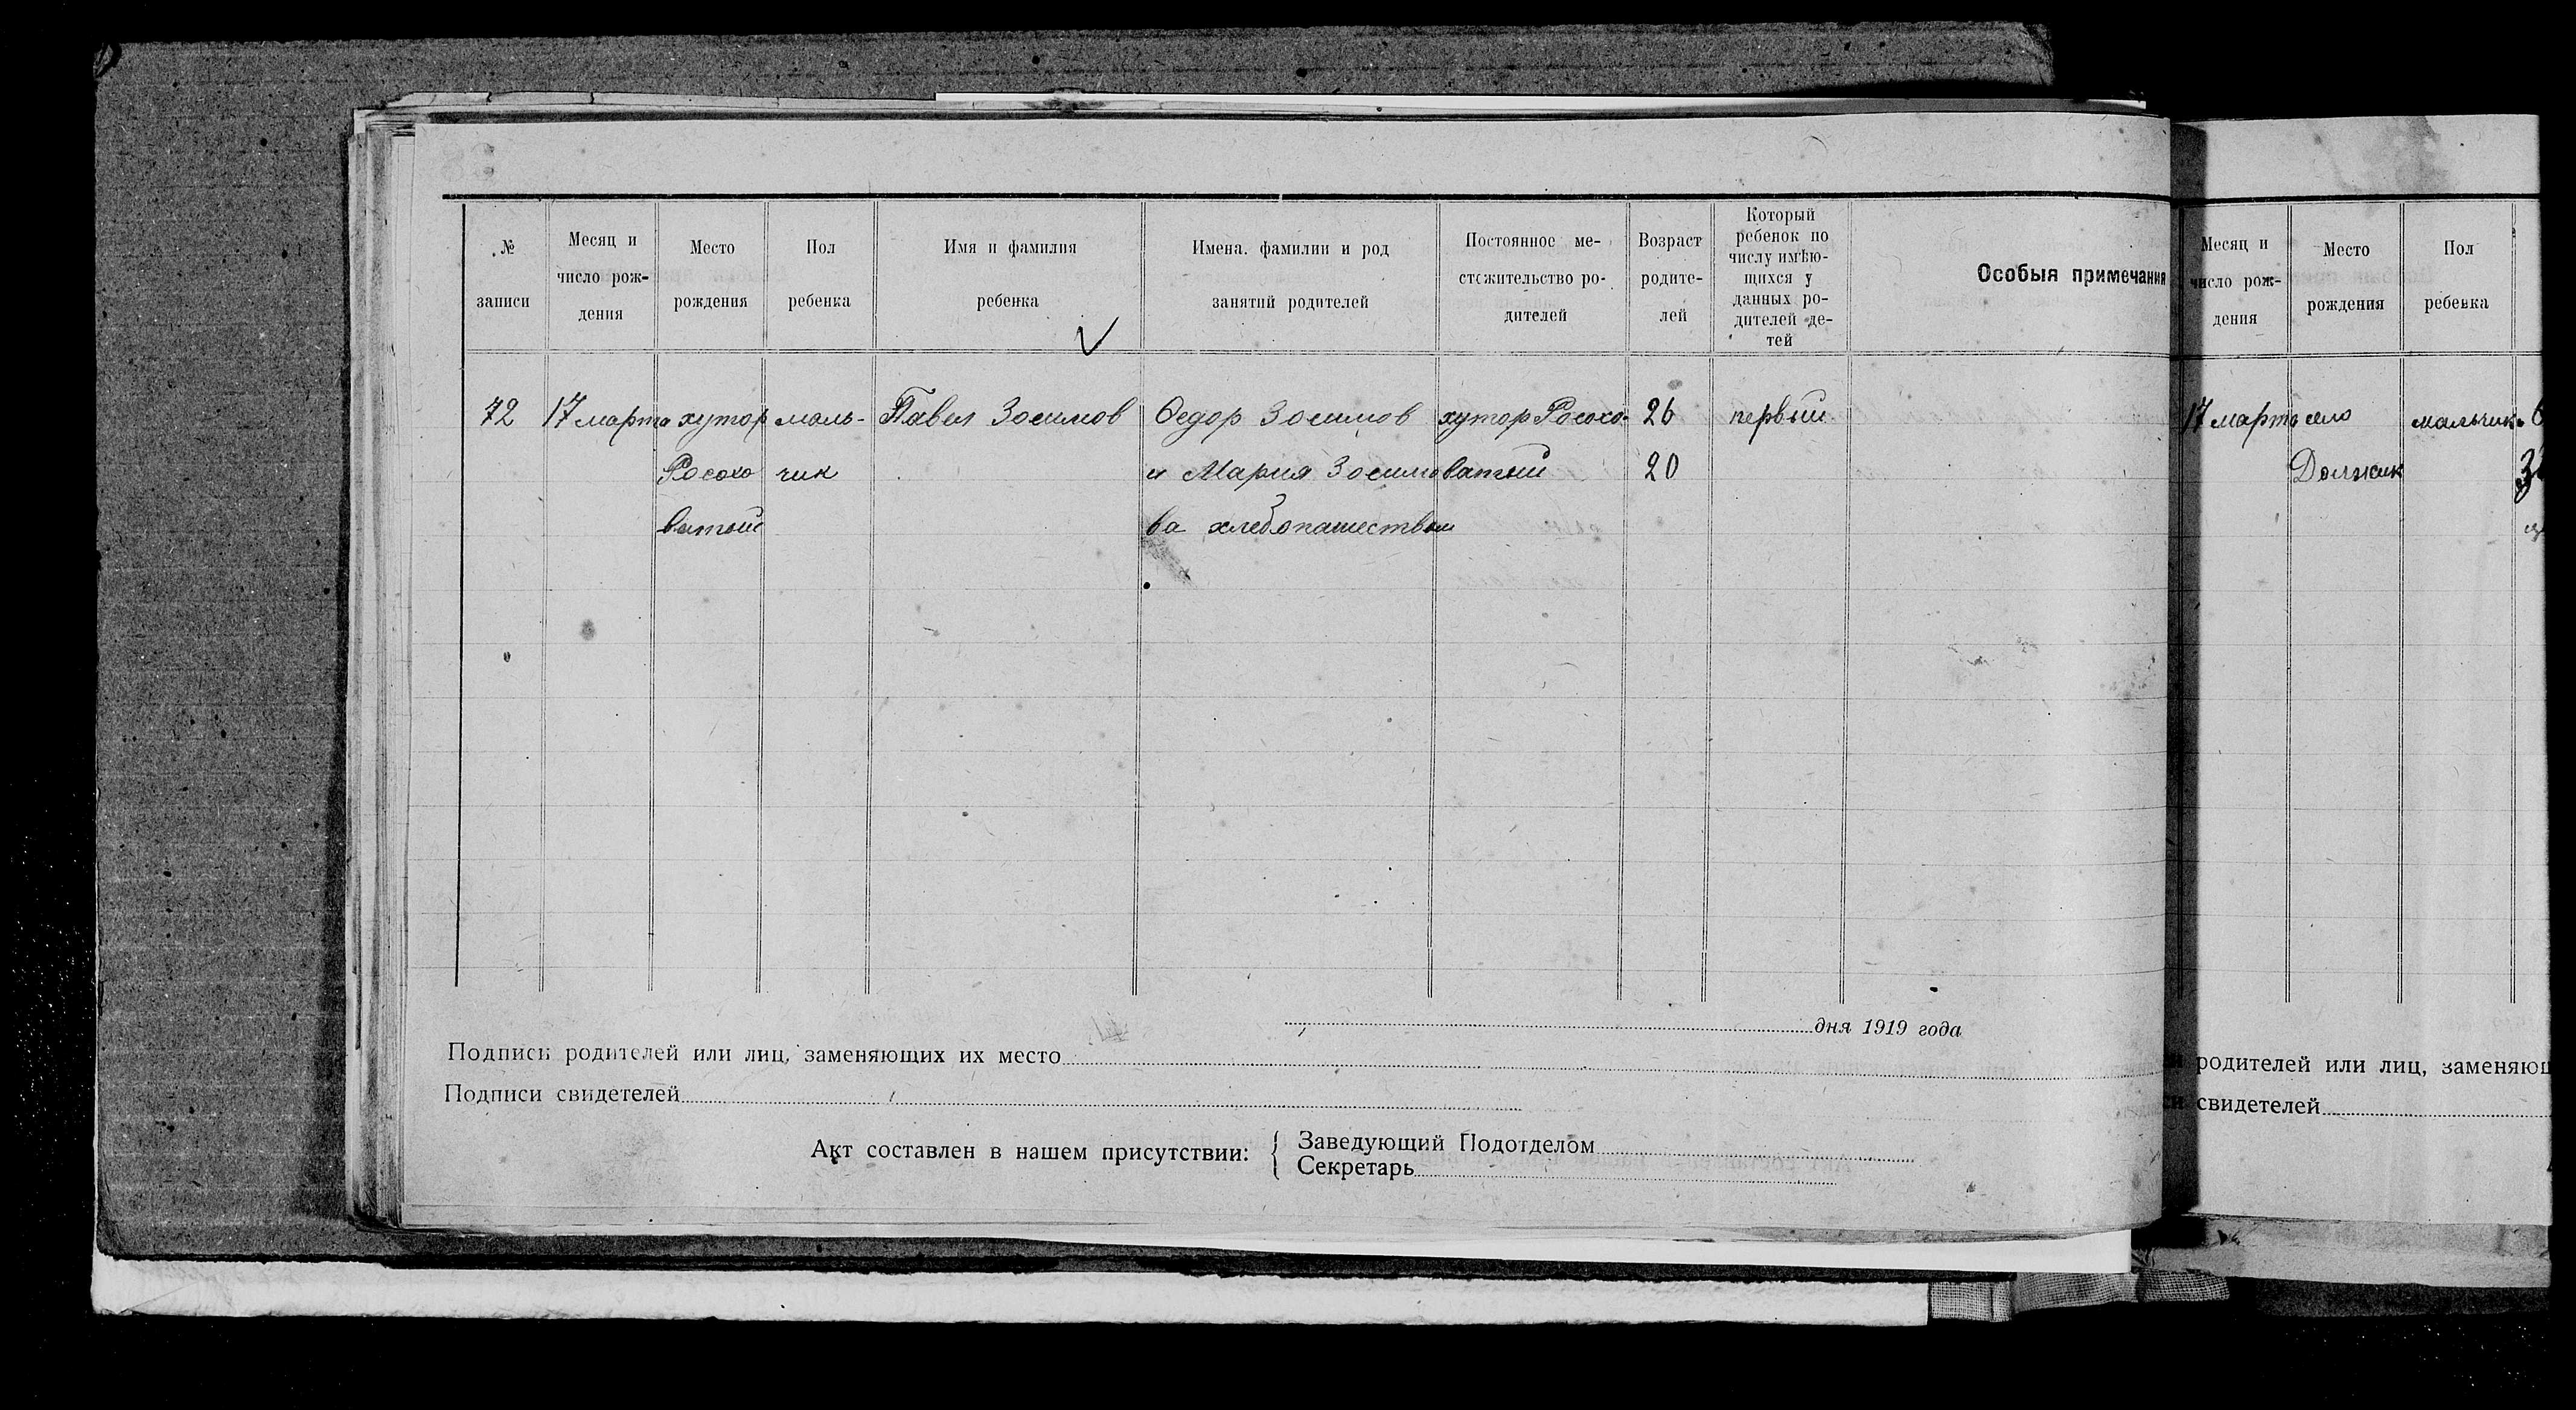 № записи
Месяц и число рождения
Место рождения
Пол ребенка
Имя и фамилия ребенка
Имена. фамилии и род занятий родителей
Постоянное местожительство родителей
Возраст родителей
Который ребенок по числу имѣющихся у данных родителей детей
Особыя примечания
72 17 марта хутор маль- Павел Зосимов Федор Зосимов хутор Росохо- 26 первый
Росохо чик и Мария Зосимо ватый 20
ватый ва хлебопашеством
дня 1919 года
Подписи родителей или лиц, заменяющих их место
Подписи свидетелей
Акт составлен в нашем присутствии:
Заведующий Подотделом
Секретарь
Месяц и число рождения
Место рождения
Пол ребенка
17 марта село мальчик
Должик
родителей или лиц, заменяющ
свидетелей